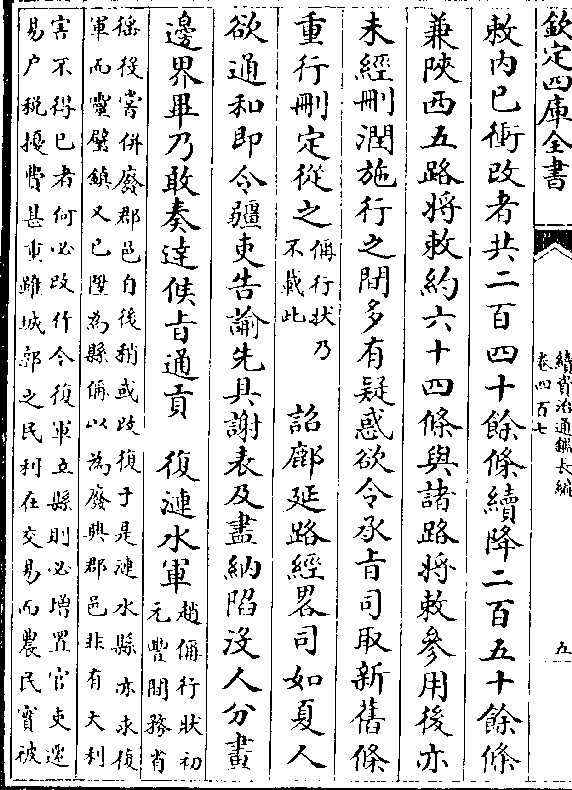 欽定四庫全書
續資治通鑑長編
卷四百七
五
敕内已衝改者共二百四十餘條續降二百五十餘條
兼陜西五路將敕約六十四條與諸路將敕參用後亦
未經刪潤施行之間多有疑惑欲令承㫖司取新舊條
重行刪定從之
偁行狀乃
不載此
詔鄜延路經畧司如夏人
欲通和即令疆吏告諭先具謝表及盡納陷沒人分畫
邊界畢乃敢奏達候㫖通貢
復漣水軍
趙偁行狀初
元豐間務省
徭役嘗併廢郡邑自後稍或改復于是漣水縣亦求復
軍而靈壁鎮又已陞為縣偁以為廢興郡邑非有大利
害不得已者何必改作今復軍立縣則必増置官吏遷
易户税擾費甚重雖城郭之民利在交易而農民實被